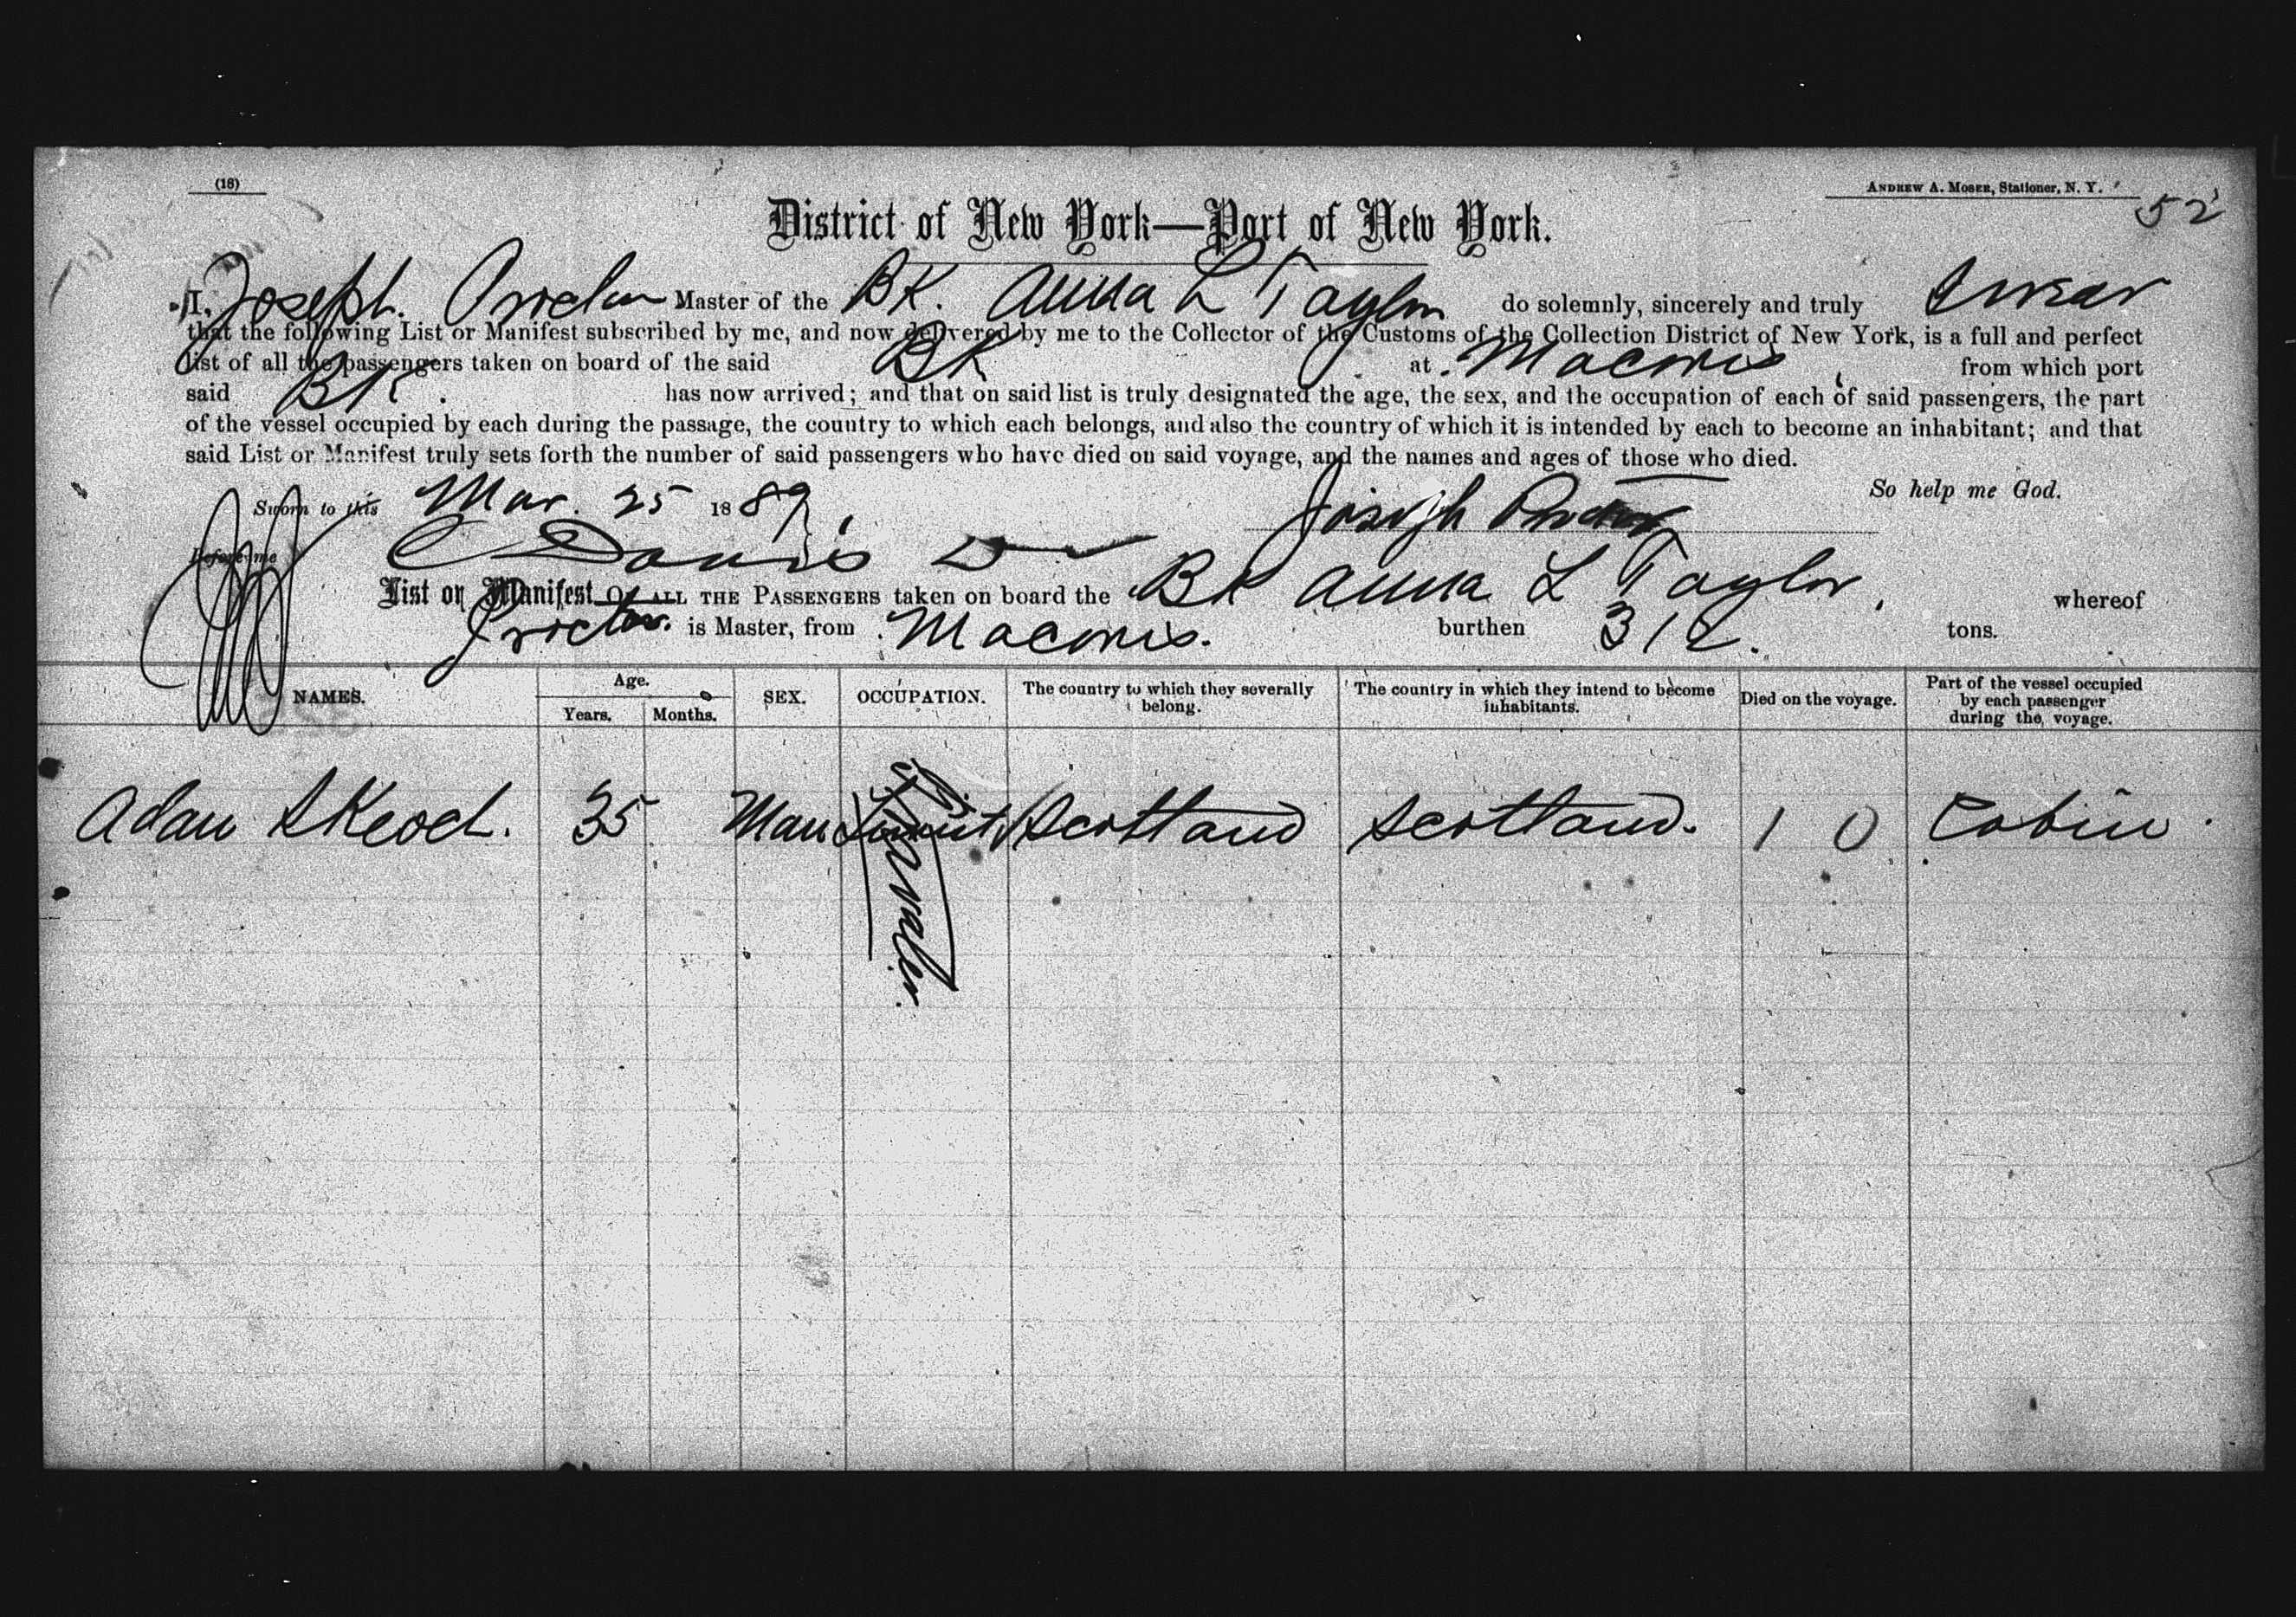 (18)
ANDREW A. MOSER, Stationer, N. Y.
52
District of New York—Port of New York.
I, Joseph Proctor Master of the BK. Anna L Taylor do solemnly, sincerely and truly swear
that the following List or Manifest subscribed by me, and now delivered by me to the Collector of the Customs of the Collection District of New York, is a full and perfect
list of all the passengers taken on board of the said BK at Macoris from which port
said BK. has now arrived; and that on said list is truly designated the age, the sex, and the occupation of each of said passengers, the part
of the vessel occupied by each during the passage, the country to which each belongs, and also the country of which it is intended by each to become an inhabitant; and that
said List or Manifest truly sets forth the number of said passengers who have died on said voyage, and the names and ages of those who died.
So help me God.
Sworn to this Mar. 25 1889, Joseph Proctor
Before me Davis
List or Manifest OF ALL THE PASSENGERS taken on board the BK Anna L Taylor, whereof
Proctor. is Master, from Macoris. burthen 312. tons.
NAMES. Age. Years. Months. SEX. OCCUPATION. The country to which they severally belong. The country in which they intend to become inhabitants. Died on the voyage. Part of the vessel occupied by each passenger during the voyage.
Adam Skeoch. 35 Man Scotland Scotland. 1 0 Cabin.